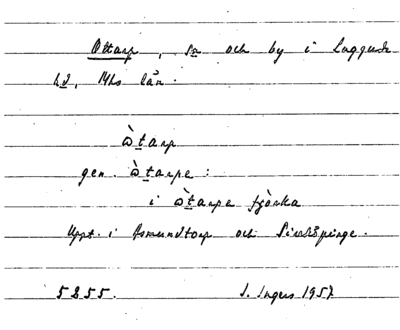 Ottarp, sn och by i Luggude
hd, Mhs län.
ὼtarp
gen. ὼtarpe:
i ὼtarpe kjörka
Uppt. i Asmundtorp och Sireköpinge.
5255. I. Ingers 1957